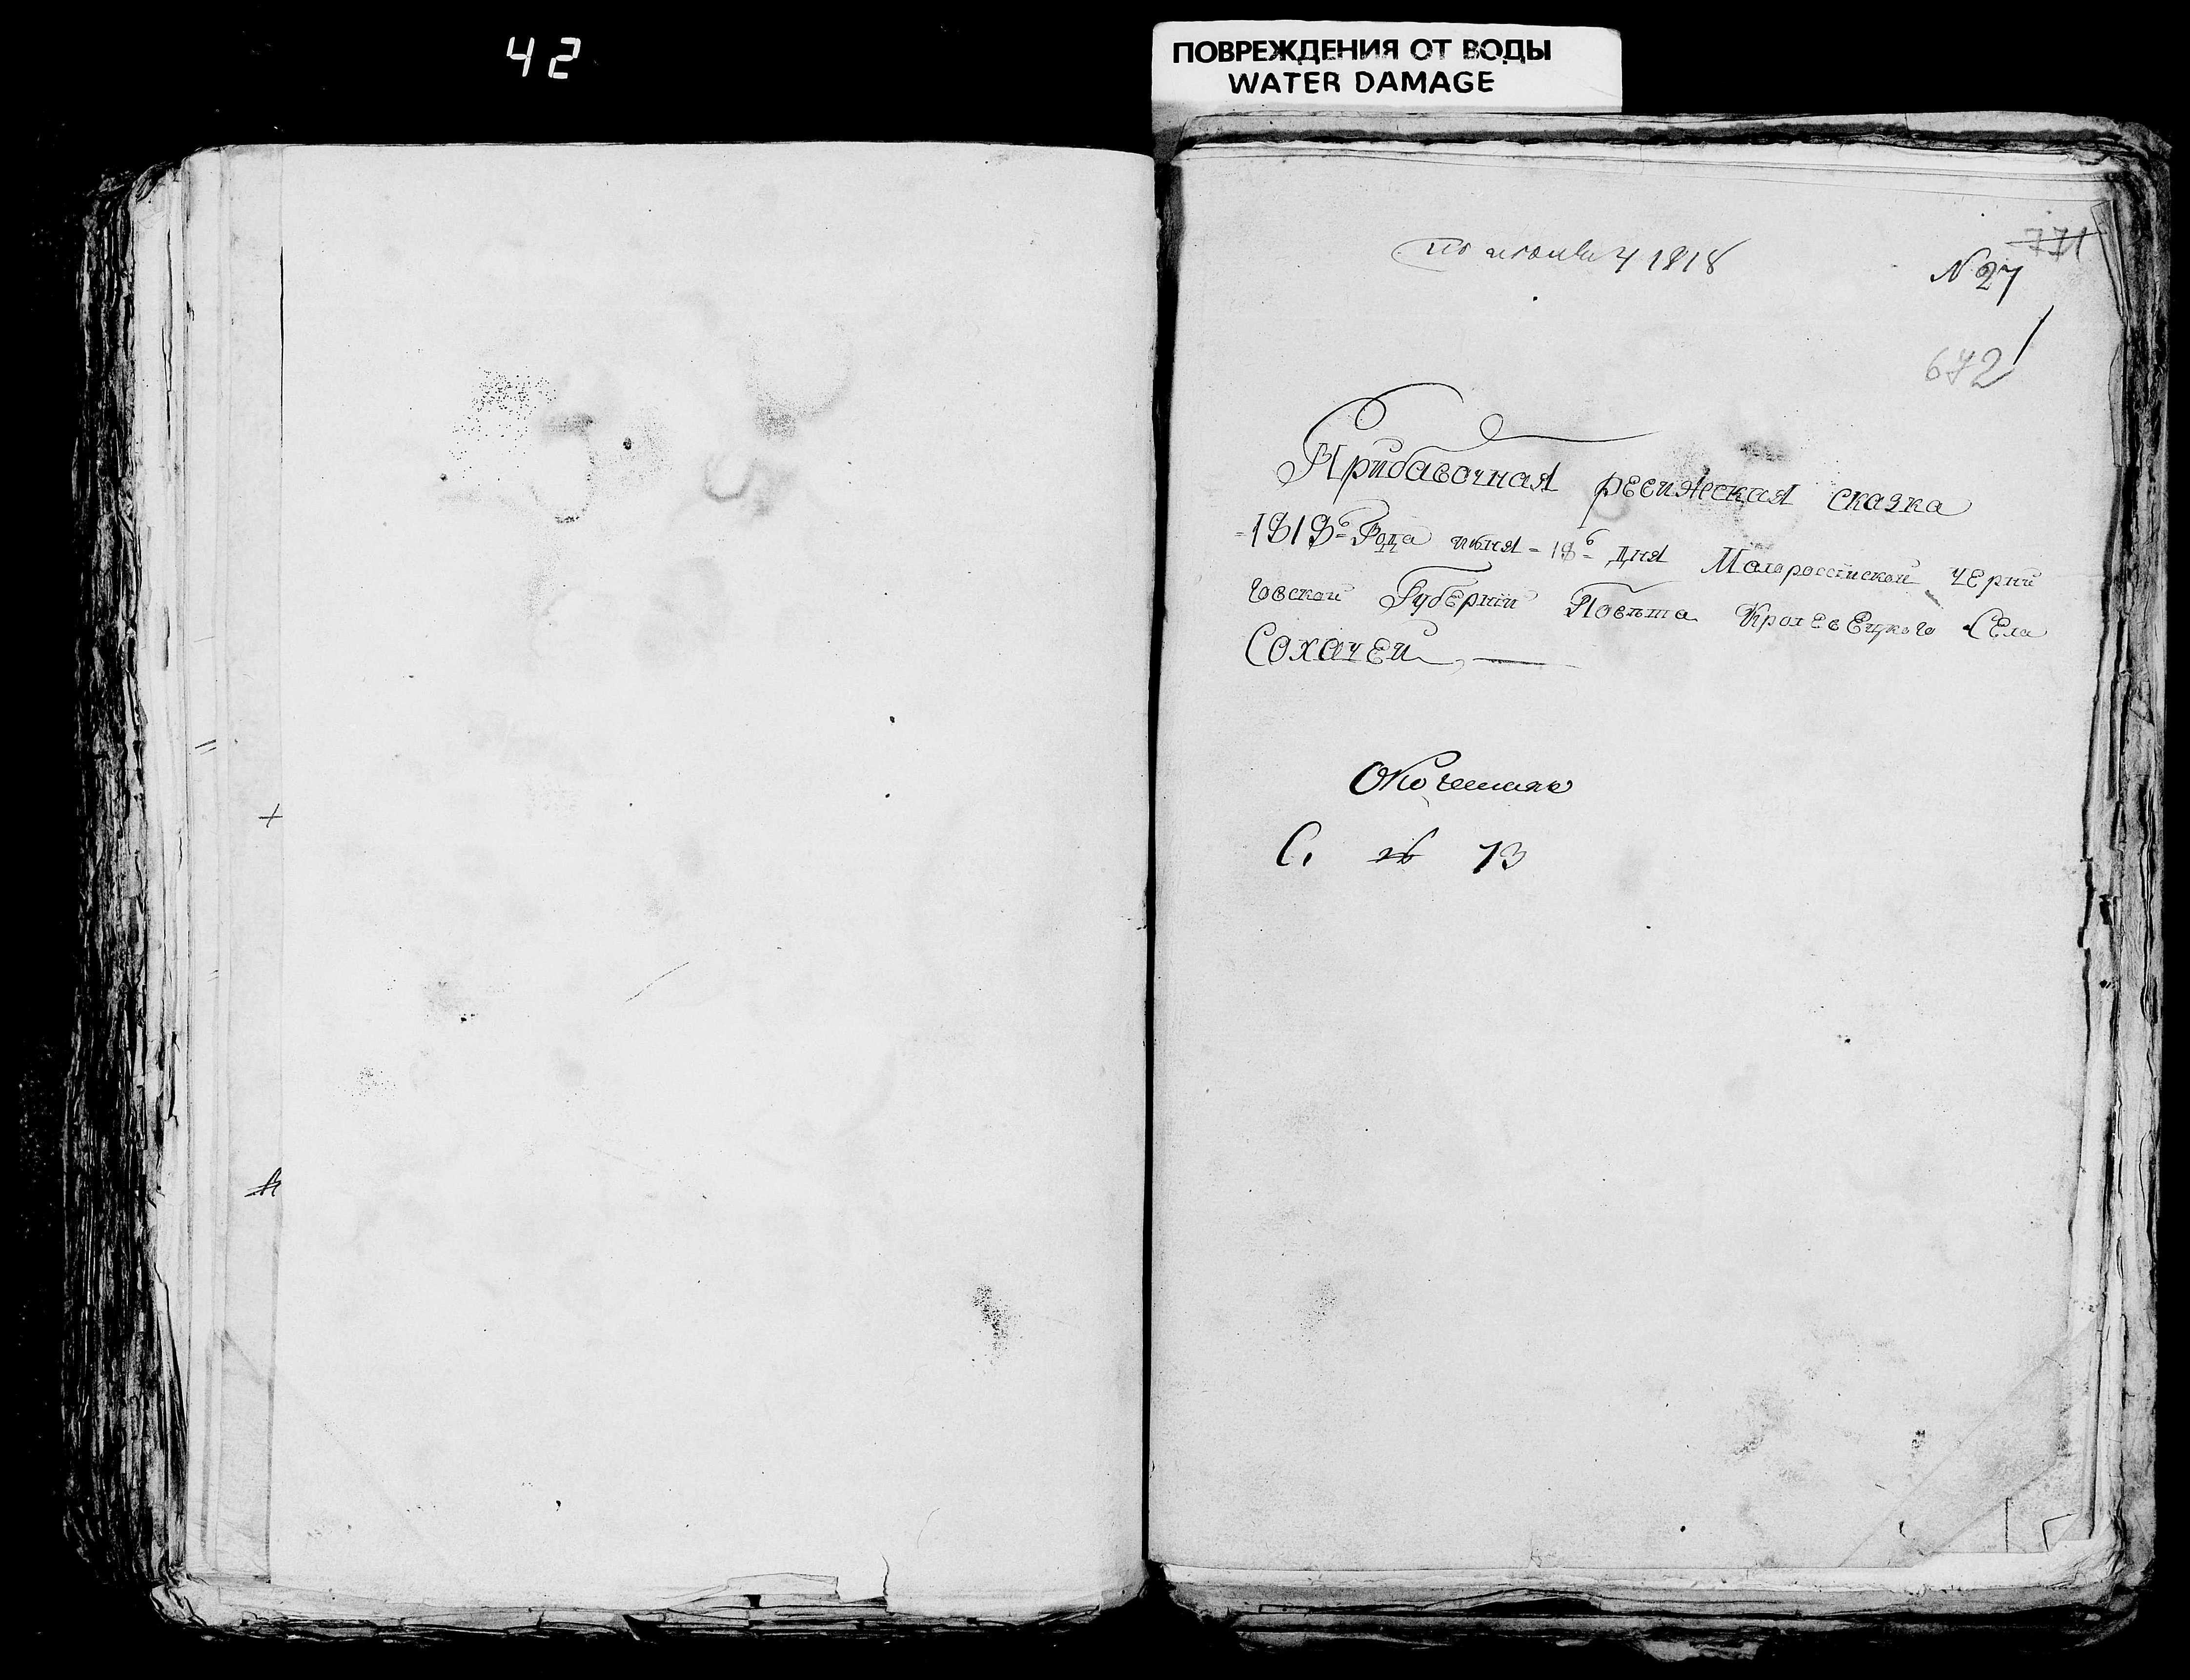 42
ПОВРЕЖДЕНИЯ ОТ ВОДЫ
WATER DAMAGE
771
1818
N 27
672
Прибавочная ревижская сказка
=1818го= Года июня =18го= дня Малороссииской черни
говской Губернии Повѣта Кролевецкого Села
Сохачей
С. № 13